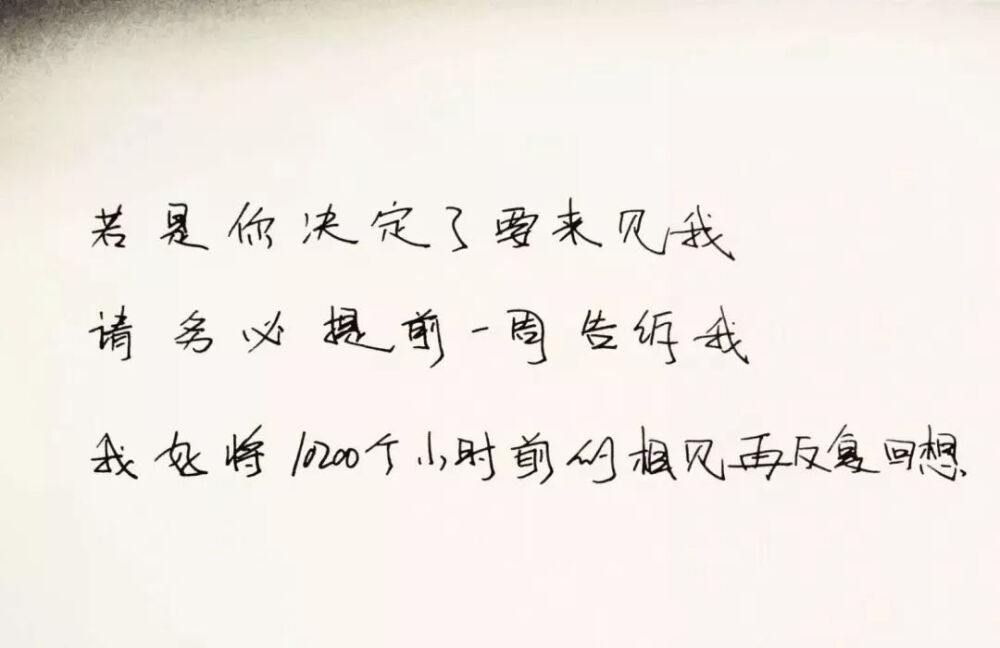 若是你决定了要来见我
请务必提前一周告诉我
我好将10200个小时前的相见再反复回想.